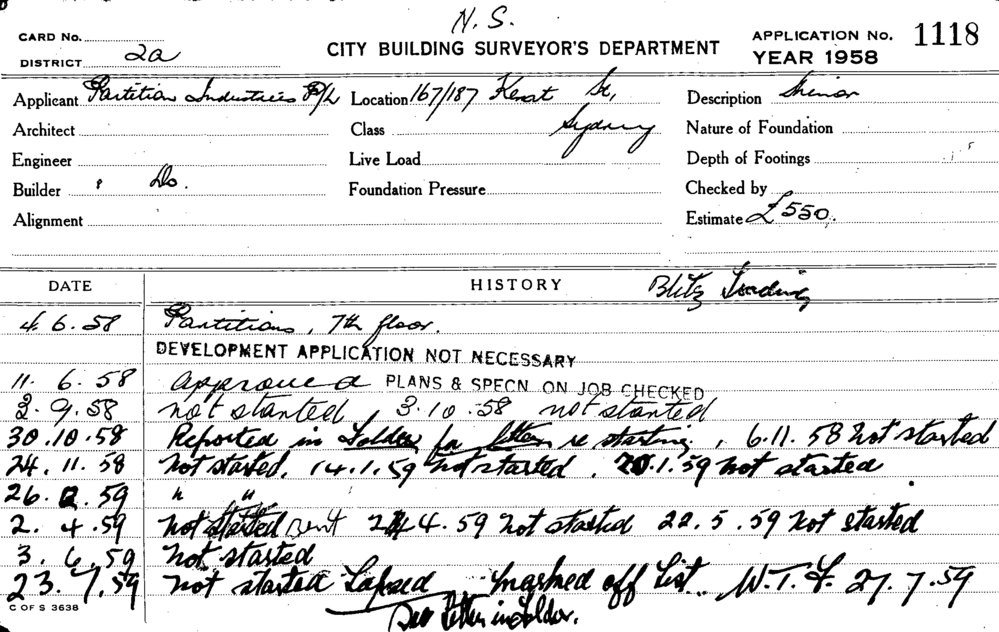 N. S.
CARD No.
DISTRICT 2a
CITY BUILDING SURVEYOR'S DEPARTMENT
APPLICATION No. 1118
YEAR 1958
Applicant Partition Industries P/L Location 167/187 Kent St, Description Minor
Architect Class Sydney Nature of Foundation
Engineer Live Load Depth of Footings
Builder " Do. Foundation Pressure Checked by
Alignment Estimate £550.
DATE HISTORY Blitz
4. 6. 58 Partitions, 7th floor.
DEVELOPMENT APPLICATION NOT NECESSARY
11. 6. 58 Approved PLANS & SPECN. ON JOB CHECKED
3. 9. 58 not started, 3.10.58 not started
30.10.58 Reported in folder for letter re starting, 6.11.58 Not started
24.11.58 Not started. 14.1.59 Not started. 20.1.59 Not started
26. 2. 59 " "
2. 4. 59 Not started sent 4.59 Not started 22.5.59 Not started
3. 6. 59 Not started
23.7.59 Not started Lapsed marked off List. W.T.F. 27.7.59
C OF S 3638
See letter in folder.